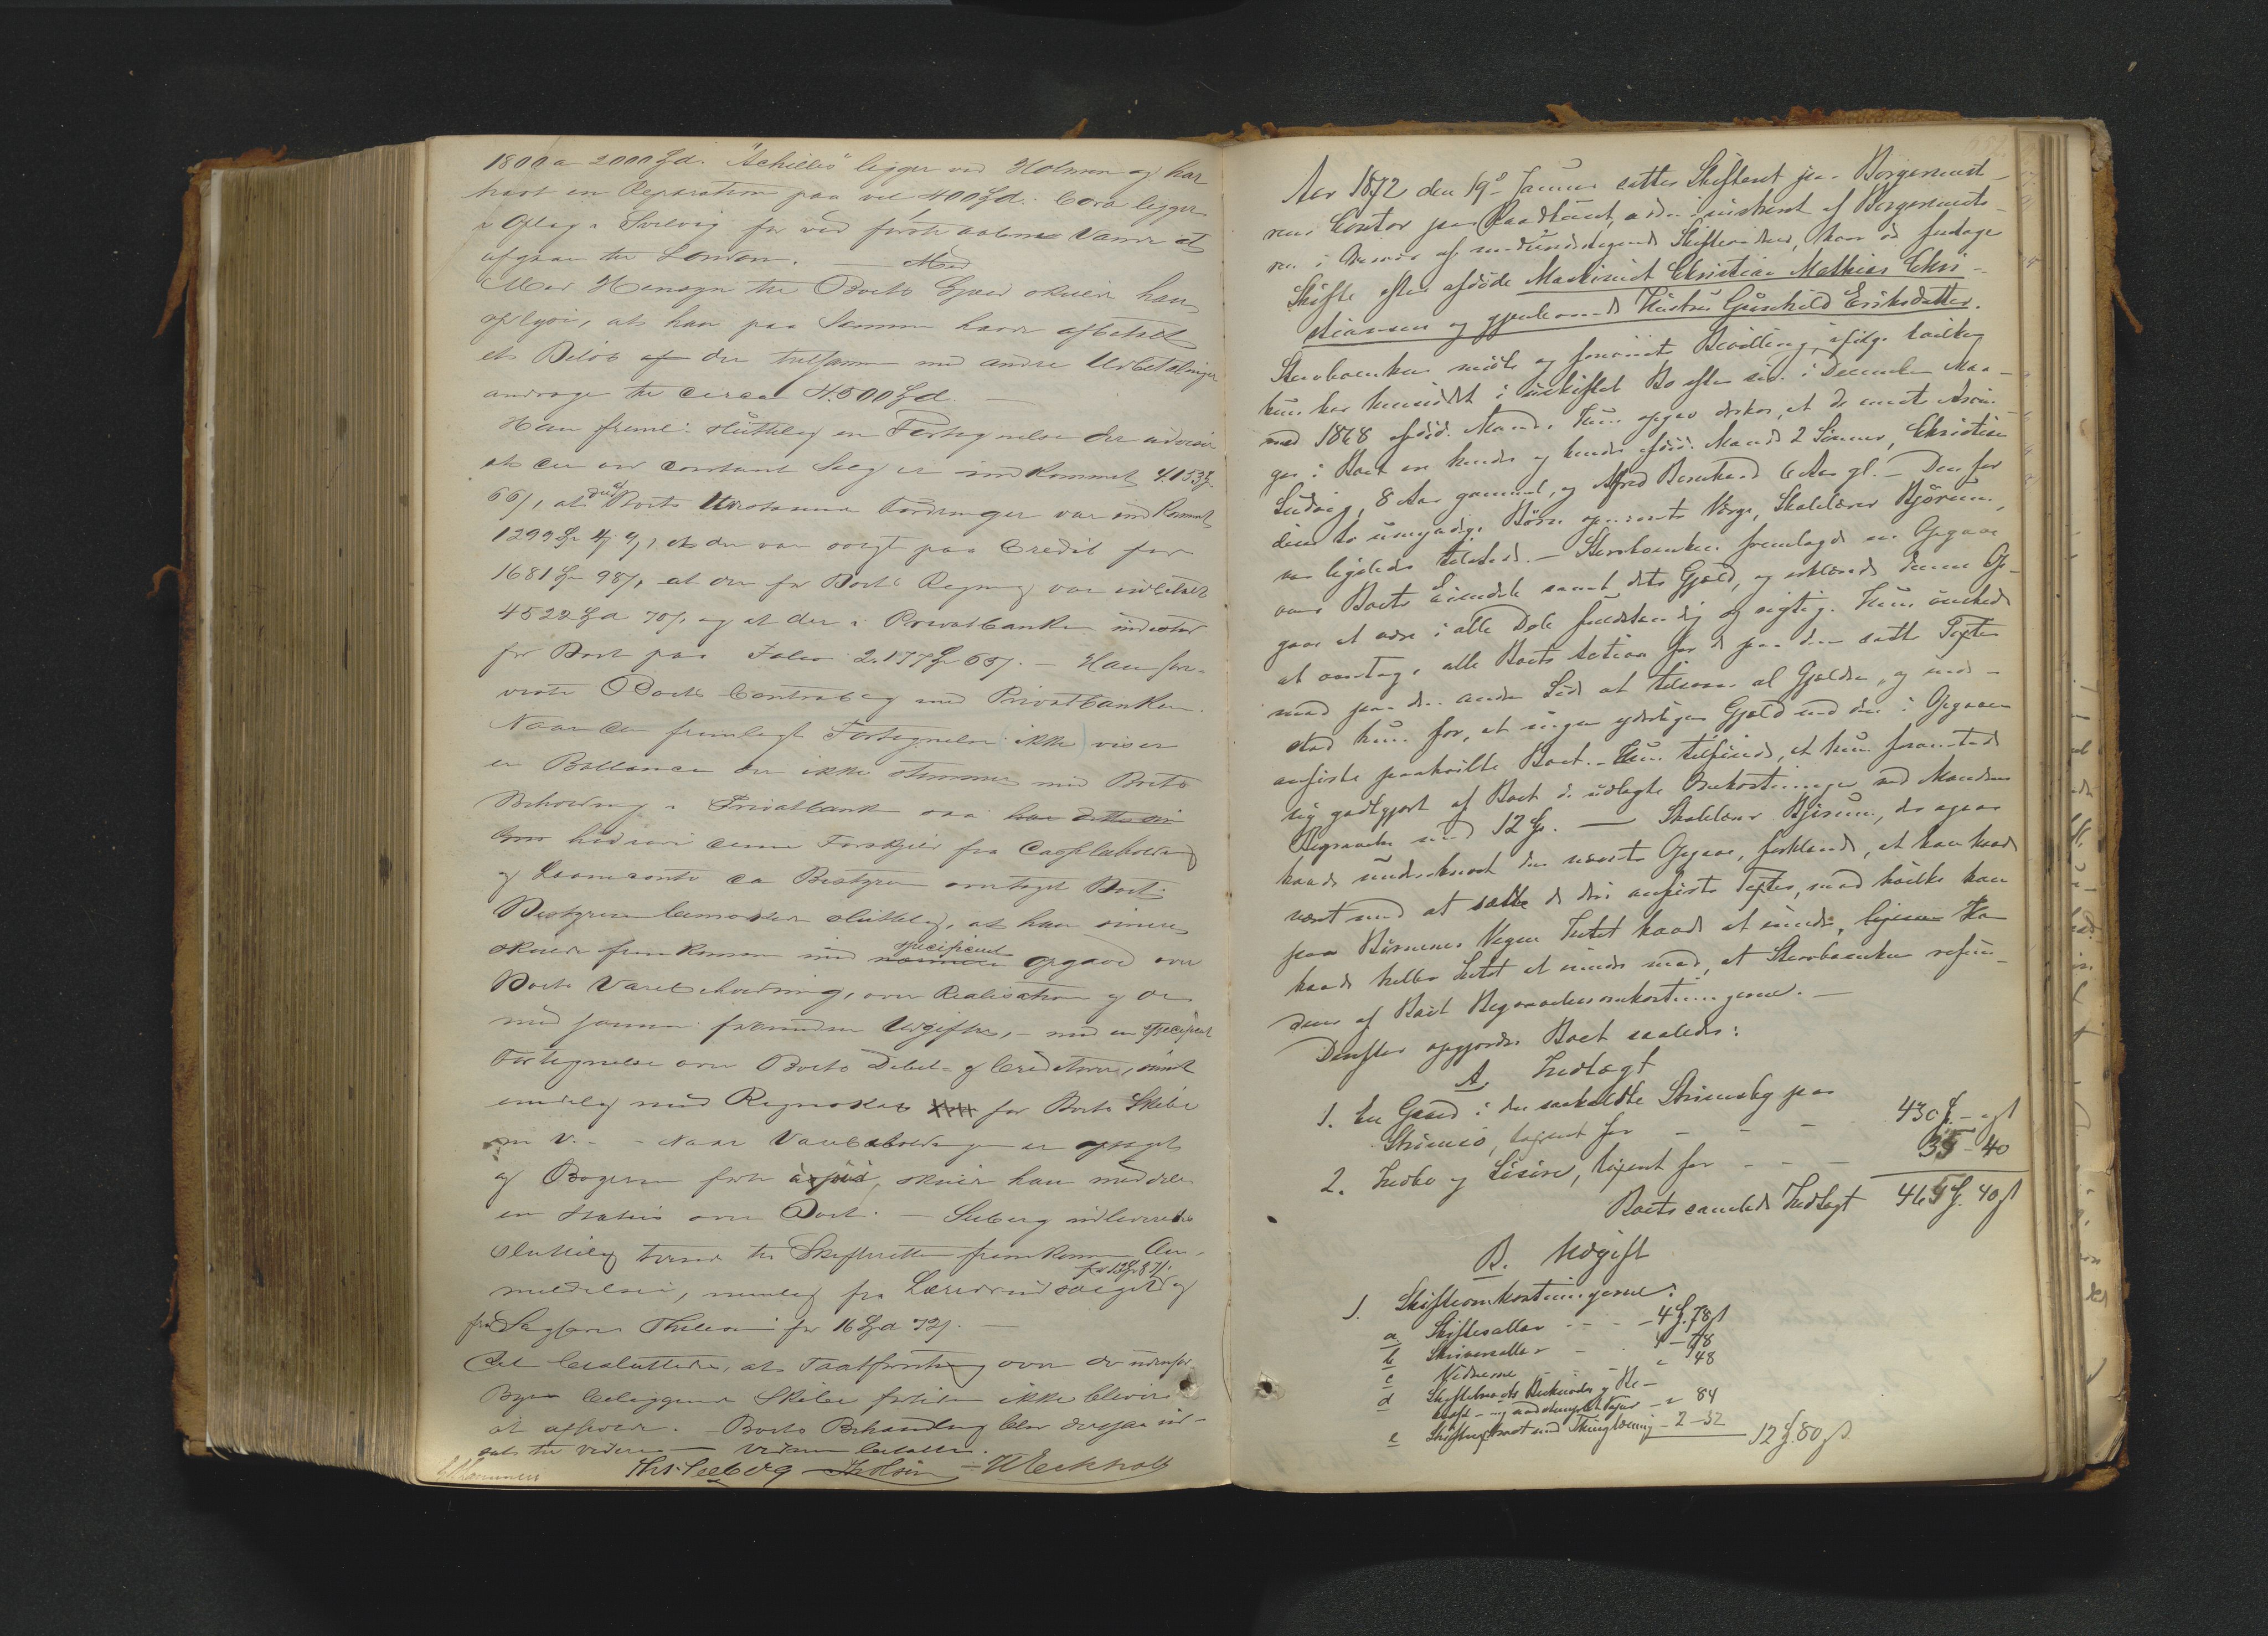 1800 a 2000 Spd. "Achilles" ligger ved Holmen og har
havt en Reparation paa vel 400 Spd. Cora ligger
i Oplag i Svelvig for ved første aabne Vande at
afgaa til London. — Med
Med Hensyn til Boets Gjeld skulde han
oplyse, at han paa Samme havde afbetalt
et Beløb af der tilsammen med andre Udbetalinger
androge til circa 4.500 Spd. —
Han freml: sluttelig en Fortegnelse der udviser
at der ved contant Salg er indkommet 4.153 Spd
66 s, at af Boets Udestaaende Fordringer var indkommet
1299 Spd 4 9 s, at der var solgt paa Credit for
1681 Spd 98 s, at der for Boets Regning var udbetalt
4522 Spd 70 s og at der i Privatbanken indestod
for Boet paa Folio 2.177 Spd 65 s. — Han fore-
viste Boets Contrabog med Privatbanken.
Naar den fremlagte Fortegnelse ikke viser
en Ballance der ikke stemmer med Boets
Beholdning i Privatbank saa har dette sin
hidrører denne Forskjel fra Cassabeholdning
og Laanconto da Bestyreren overtog Boet.
Bestyreren bemærkede sluttelig, at han senere
skulde fremkomme med specificeret opgave over
Boets Varebeholdning, over Realisation og de
med samme forbundne Udgifter, — med en specificeret
Fortegnelse over Boets Debet- og Creditorer, samt
endelig med Regnskab for Boets Skibe
m. v. — Naar Varebeholdningen er opgjort
og Bøgerne ført à jour, skulde han meddele
en Status over Boet. — Seeberg indleverede
sluttelig tvende til Skifteretten fremkomne An-
meldelser, nemlig fra for 13 Spd 87 s. og
fra Sagfører Thilesen for 16 Spd 72 s. —
Det besluttedes, at Taxtforretning over de udenfor
Byen beliggende Skibe foreløbig ikke bliver
at afholde. — Boets Behandling blev derpaa ud-
sat til videre. — Vidnerne betalte.
Chr. Seeberg Th Olsen H Eckholt
Aar 1872 den 19de Januar sattes Skifteret paa Borgermest-
rens Contor paa Raadhuset, administreret af Borgermeste-
ren i Overvær af nedenunderskrevne Skiftevidner, hvor da foretoges
Skifte efter afdøde Maskinist Christian Mathias Chri-
stiansen og gjenlevende Hustru Gunhild Eriksdatter.
Sterboenken mødte og foreviste Bevilling, ifølge hvilken
hun har hensiddet i uskiftet Bo efter sin i December Maa-
ned 1868 afdøde Mand. Hun opgav derhos, at de eneste Arvin-
ger i Boet ere hendes og hendes afdøde Mands 2 Sønner, Christian
Ludvig, 8 Aar gammel, og Alfred Bernhard 6 Aar gl. — Den for
disse to umyndige Børn opnævnte Værge, Skolelærer Bjørum,
var ligeledes tilstede. — Sterboenken fremlagde en Opgave
over Boets Eiendele samt dets Gjeld, og erklærede denne Op-
gave at være i alle Dele fuldstændig og rigtig. Hun ønskede
at overtage alle Boets Activa for de paa dem satte Taxter
mod paa den anden Side at tilsvare al Gjelden, og inde-
stod hun for, at ingen yderligere Gjeld end den i Opgaven
anførte paahvilte Boet. — Hun tilføiede, at hun forventede
sig godtgjort af Boet de udlagte Omkostninger ved Mandens
Begravelse med 12 Spd. — Skolelærer Bjørum, der ogsaa
havde underskrevet den nævnte Opgave, forklarede, at han havde
været med at sætte de deri anførte Taxter, mod hvilke han
paa Børnenes Vegne Intet havde at erindre, ligesom Han
havde heller Intet at erindre mod, at Sterboenken refun-
deres af Boet Begravelsesomkostningerne. —
Derefter opgjordes Boet saaledes:
A. Indtægt
1. En Gaard i den saakaldte Strømsbyg paa
Strømsø, taxeret for — — — 430 Spd. — s
2. Indbo og Løsøre, taxeret for — — — 35 – 40
Boets samlede Indtægt 465 Spd. 40 s
B. Udgift
1. Skifteomkostningerne:
a Skiftesallær — — 4 Spd. 78 s
b Skriversallær — 4 – 78
c Vidnerne — " 48
d Skiftebrevets Beskrivelse og Be-
kræft- ing med stemplet Papir — " 84
e Skiftebrevet med Thinglæsning — 2 – 32 12 Spd. 80 s.